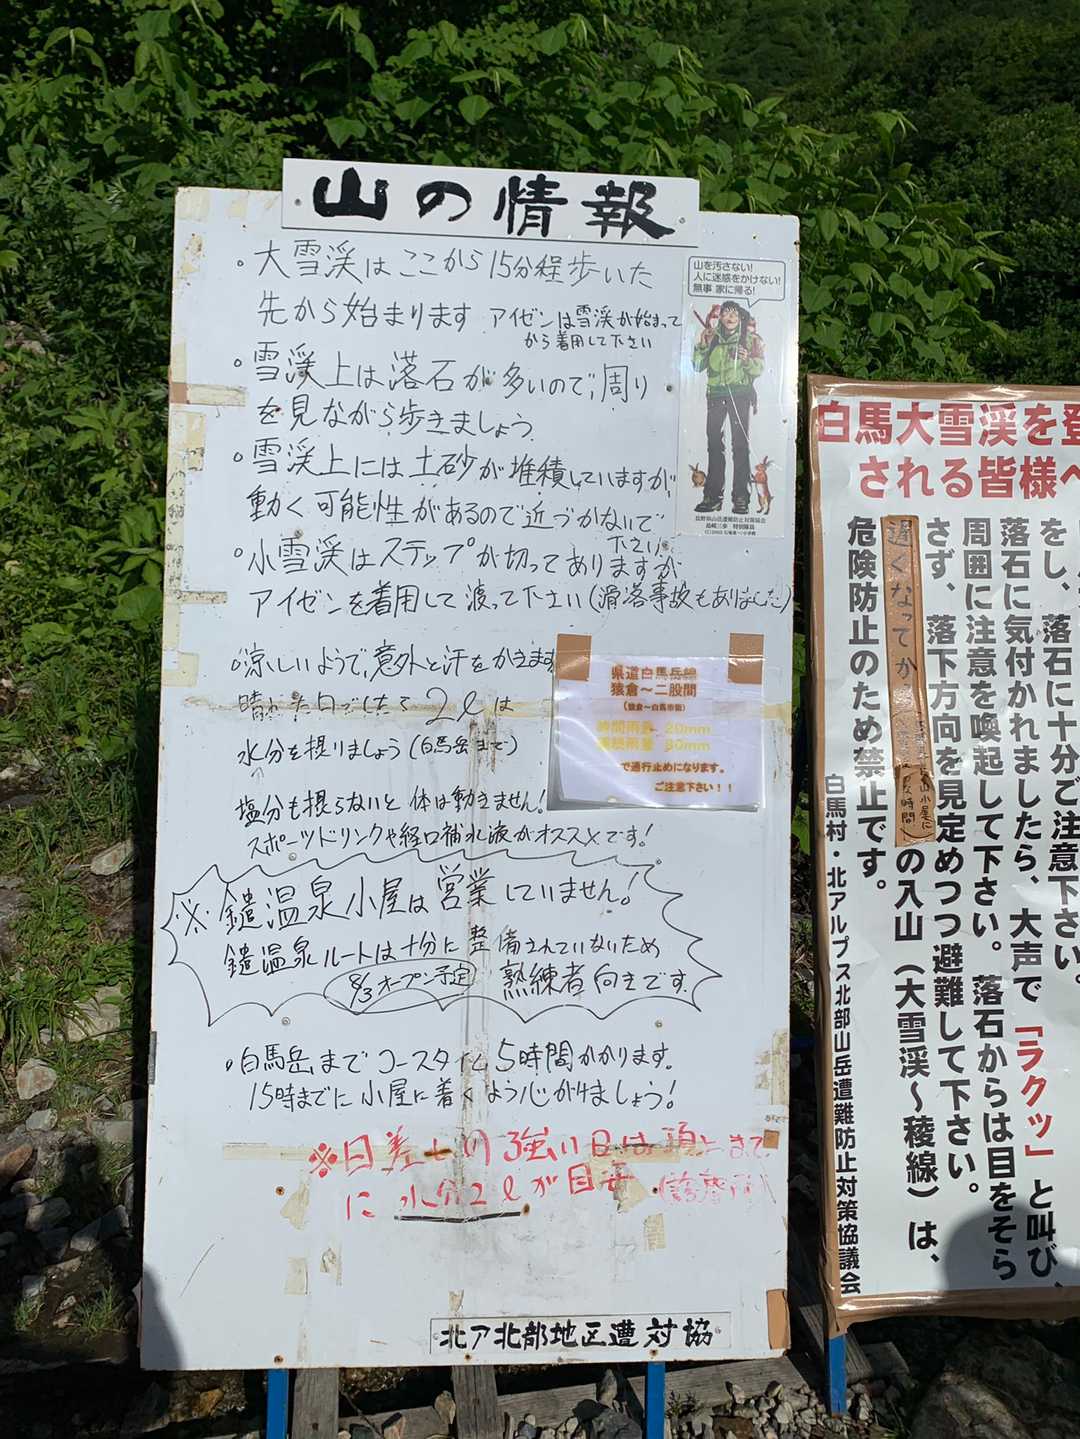 山の情報
・大雪渓はここから15分程歩いた
先から始まります アイゼンは雪渓が始まって
から着用して下さい
・雪渓上は落石が多いので、周り
を見ながら歩きましょう
・雪渓上には土砂が堆積していますが、
動く可能性があるので近づかないで
下さい
・小雪渓はステップが切ってありますが
アイゼンを着用して渡って下さい(滑落事故もありました)
・涼しいようで、意外と汗をかきます
晴れた日でしたら2ℓは
水分を摂りましょう(白馬岳まで)
塩分も摂らないと体は動きません!
スポーツドリンクや経口補水液がオススメです!
※鑓温泉小屋は営業していません!
鑓温泉ルートは十分に整備されていないため
8/3オープン予定 熟練者向きです。
・白馬岳までコースタイム5時間かかります。
15時までに小屋に着くよう心がけましょう!
※日差しの強い日は頂上まで
に水分2ℓが目安(診療所)
北ア北部地区遭対協
山を汚さない!
人に迷惑をかけない!
無事 家に帰る!
県道白馬岳線
猿倉〜二股間
時間雨量 20mm
連続雨量 80mm
で通行止めになります。
ご注意下さい!!
白馬大雪渓を登
される皆様へ
をし、落石に十分ご注意下さい。
落石に気付かれましたら、大声で「ラクッ」と叫び、
周囲に注意を喚起して下さい。落石からは目をそら
さず、落下方向を見定めつつ避難して下さい。
遅くなってか
山小屋に
時間)
の入山(大雪渓〜稜線)は、
危険防止のため禁止です。
白馬村・北アルプス北部山岳遭難防止対策協議会